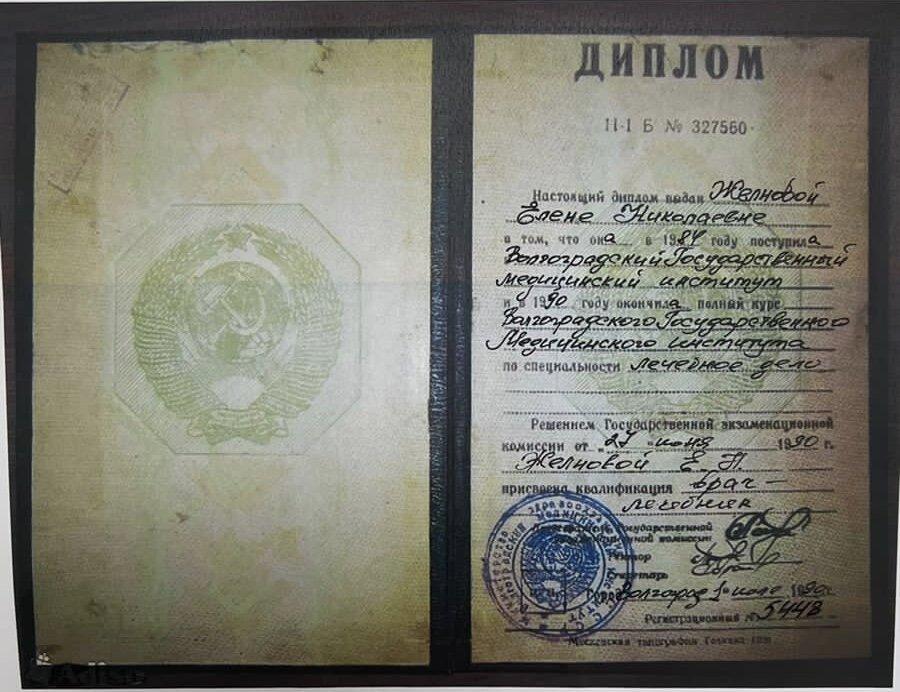 ДИПЛОМ
Н-I Б № 327560
Настоящий диплом выдан Желновой
Елене Николаевне
в том, что она в 1984 году поступила
Волгоградский Государственный
медицинский институт
и в 1990 году окончила полный курс
Волгоградского Государственного
Медицинского института
по специальности лечебное дело
Решением Государственной экзаменационной
комиссии от "27" июня 1990 г.
Желновой Е. Н.
присвоена квалификация врач-
лечебник
Государственной
комиссии
Ректор
Секретарь
Город Волгоград июля 1990 г.
Регистрационный № 5448
Московская типография Гознака